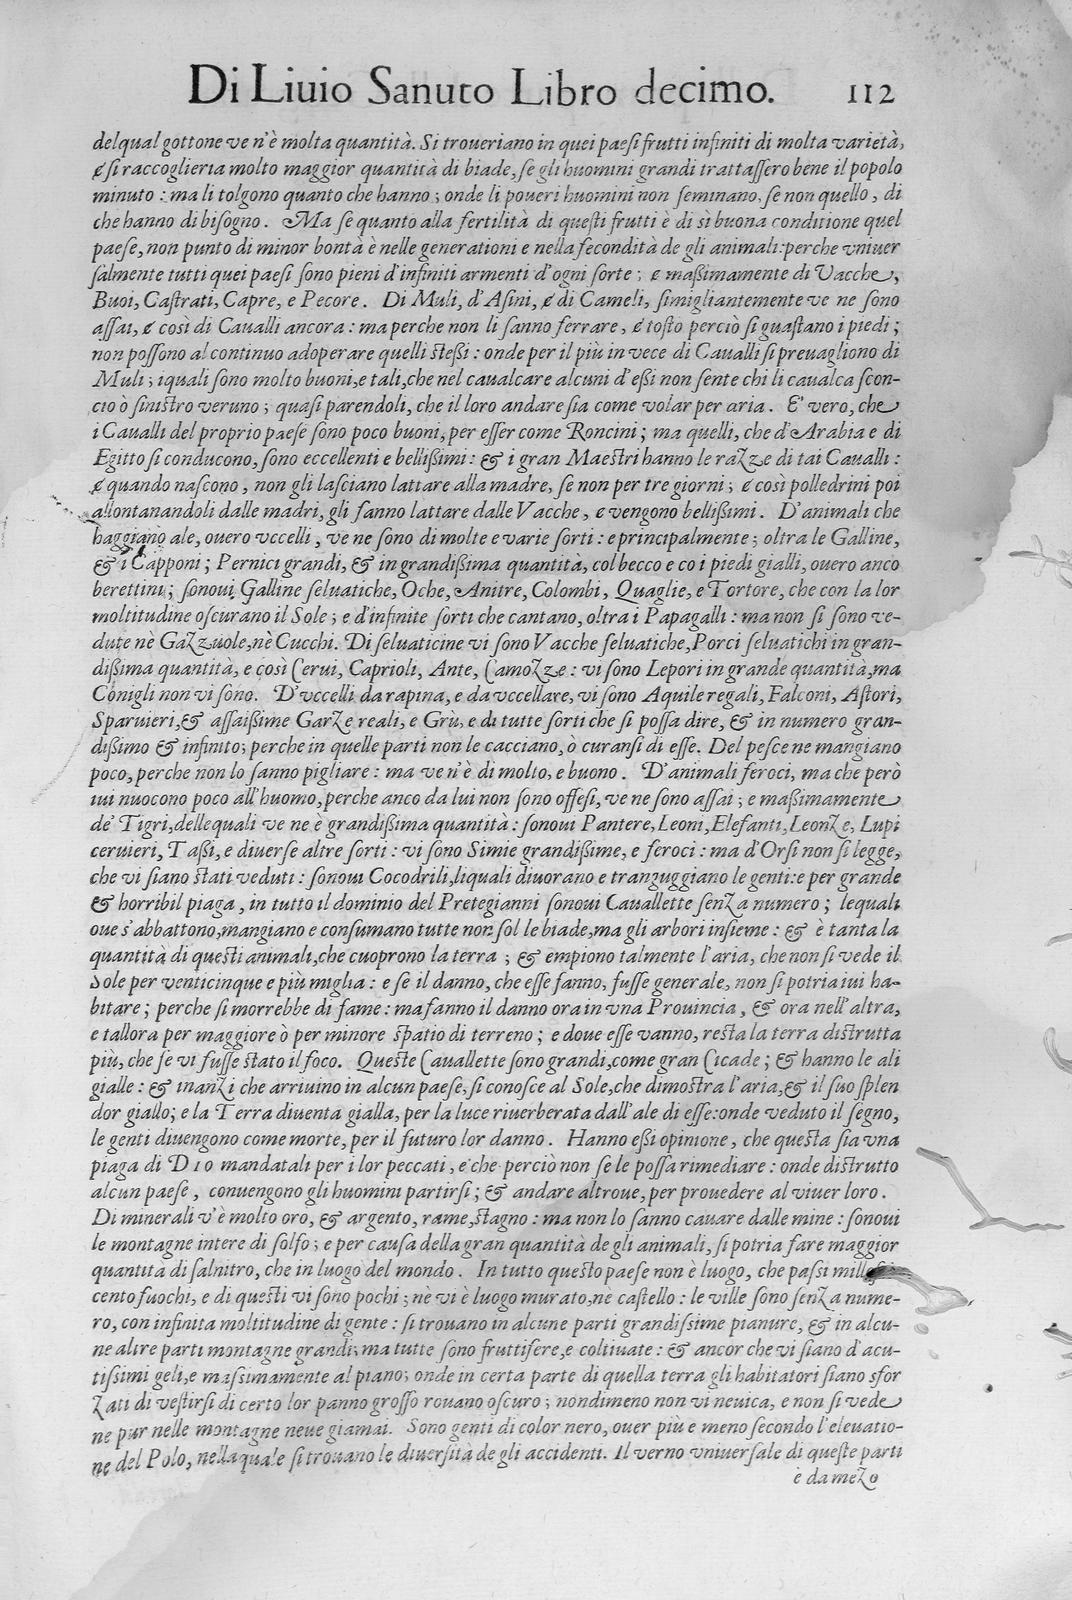 Di Liuio Sanuto Libro decimo. 112
del qual gottone ve n'è molta quantità. Si troueriano in quei paesi frutti infiniti di molta varietà,
& si raccoglieria molto maggior quantità di biade, se gli huomini grandi trattassero bene il popolo
minuto : ma li tolgono quanto che hanno ; onde li poueri huomini non seminano, se non quello, di
che hanno di bisogno. Ma se quanto alla fertilità di questi frutti è di sì buona conditione quel
paese, non punto di minor bontà è nelle generationi e nella fecondità de gli animali: perche vniuer
salmente tutti quei paesi sono pieni d'infiniti armenti d'ogni sorte ; e maßimamente di Vacche,
Buoi, Castrati, Capre, e Pecore. Di Muli, d'Asini, & di Cameli, simigliantemente ve ne sono
assai, & così di Caualli ancora : ma perche non li sanno ferrare, & tosto perciò si guastano i piedi ;
non possono al continuo adoperare quelli steßi : onde per il più in vece di Caualli si preuagliono di
Muli ; i quali sono molto buoni, e tali, che nel caualcare alcuni d'eßi non sente chi li caualca scon-
cio ò sinistro veruno ; quasi parendoli, che il loro andare sia come volar per aria. E' vero, che
i Caualli del proprio paese sono poco buoni, per esser come Roncini ; ma quelli, che d'Arabia e di
Egitto si conducono, sono eccellenti e bellißimi : & i gran Maestri hanno le razze di tai Caualli :
& quando nascono, non gli lasciano lattare alla madre, se non per tre giorni ; & così polledrini poi
allontanandoli dalle madri, gli fanno lattare dalle Vacche, e vengono bellißimi. D'animali che
haggiano ale, ouero vccelli, ve ne sono di molte e varie sorti : e principalmente ; oltra le Galline,
& i Capponi ; Pernici grandi, & in grandißima quantità, col becco e co i piedi gialli, ouero anco
berettini ; sonoui Galline seluatiche, Oche, Anitre, Colombi, Quaglie, e Tortore, che con la lor
moltitudine oscurano il Sole ; e d'infinite sorti che cantano, oltra i Papagalli : ma non si sono ve-
dute nè Gazzuole, nè Cucchi. Di seluaticine vi sono Vacche seluatiche, Porci seluatichi in gran-
dißima quantità, e così Cerui, Caprioli, Ante, Camozze : vi sono Lepori in grande quantità, ma
Conigli non vi sono. D'vccelli da rapina, e da vccellare, vi sono Aquile regali, Falconi, Astori,
Sparuieri, & assaißime Garze reali, e Grù, e di tutte sorti che si possa dire, & in numero gran-
dißimo & infinito; perche in quelle parti non le cacciano, ò curansi di esse. Del pesce ne mangiano
poco, perche non lo sanno pigliare : ma ve n'è di molto, e buono. D'animali feroci, ma che però
iui nuocono poco all'huomo, perche anco da lui non sono offesi, ve ne sono assai ; e maßimamente
de' Tigri, delle quali ve ne è grandißima quantità : sonoui Pantere, Leoni, Elefanti, Leonze, Lupi
ceruieri, Taßi, e diuerse altre sorti : vi sono Simie grandißime, e feroci : ma d'Orsi non si legge,
che vi siano stati veduti : sonoui Cocodrili, liquali diuorano e tranguggiano le genti: e per grande
& horribil piaga, in tutto il dominio del Pretegianni sonoui Cauallette senza numero ; lequali
oue s'abbattono, mangiano e consumano tutte non sol le biade, ma gli arbori insieme : & è tanta la
quantità di questi animali, che cuoprono la terra ; & empiono talmente l'aria, che non si vede il
Sole per venticinque e più miglia : e se il danno, che esse fanno, fusse generale, non si potria iui ha-
bitare ; perche si morrebbe di fame : ma fanno il danno ora in vna Prouincia, & ora nell'altra,
e tallora per maggiore ò per minore spatio di terreno ; e doue esse vanno, resta la terra distrutta
più, che se vi fusse stato il foco. Queste Cauallette sono grandi, come gran Cicade ; & hanno le ali
gialle : & inanzi che arriuino in alcun paese, si conosce al Sole, che dimostra l'aria, & il suo splen
dor giallo; e la Terra diuenta gialla, per la luce riuerberata dall'ale di esse: onde veduto il segno,
le genti diuengono come morte, per il futuro lor danno. Hanno eßi opinione, che questa sia vna
piaga di DIO mandatali per i lor peccati, e che perciò non se le possa rimediare : onde distrutto
alcun paese, conuengono gli huomini partirsi ; & andare altroue, per prouedere al viuer loro.
Di minerali v'è molto oro, & argento, rame, stagno : ma non lo sanno cauare dalle mine : sonoui
le montagne intere di solfo ; e per causa della gran quantità de gli animali, si potria fare maggior
quantità di salnitro, che in luogo del mondo. In tutto questo paese non è luogo, che passi
cento fuochi, e di questi vi sono pochi ; nè vi è luogo murato, nè castello : le ville sono senza nume-
ro, con infinita moltitudine di gente : si trouano in alcune parti grandissime pianure, & in alcu-
ne altre parti montagne grandi; ma tutte sono fruttifere, e coltiuate : & ancor che vi siano d'acu-
tissimi geli, e massimamente al piano; onde in certa parte di quella terra gli habitatori siano sfor
zati di vestirsi di certo lor panno grosso rouano oscuro ; nondimeno non vi neuica, e non si vede
ne pur nelle montagne neue giamai. Sono genti di color nero, ouer più e meno secondo l'eleuatio-
ne del Polo, nella quale si trouano le diuersità de gli accidenti. Il verno vniuersale di queste parti
è da mezo